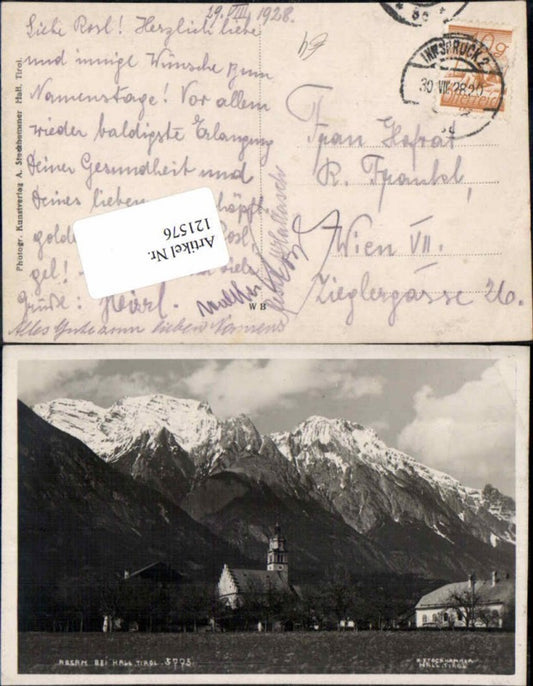 29. VIII 1928.
Liebe Rosl! Herzlich liebe
und innige Wünsche zum
Namenstage! Vor allem
wieder baldigste Erlangung
Deiner Gesundheit und
Deines lieben
golde Rosl,
gel! viele
Grüße:
Alles Gute zum lieben Namens
64
Photogr. Kunstverlag A. Stockhammer Hall, Tirol.
W B
Artikel Nr.
121576
INNSBRUCK 2
30 VII 28 20
10 g
ÖSTERREICH
Frau Hofrat
R. Frankl,
Wien VII.
Zieglergasse 26.
ABSAM BEI HALL, TIROL. 5775
A. STOCKHAMMER
HALL, TIROL